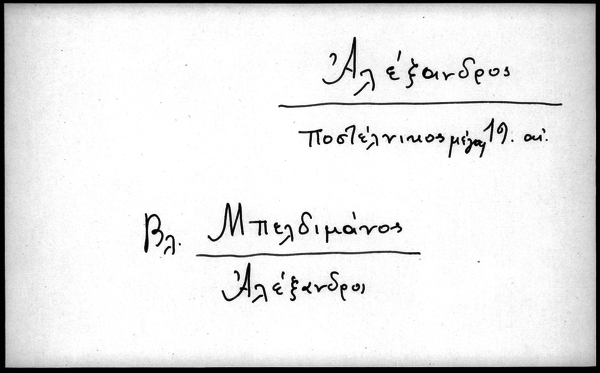 Ἀλέξανδρος
ποστέλνικος μέγας 19. αἰ.
Βλ. Μπελδιμάνος
Ἀλέξανδρος